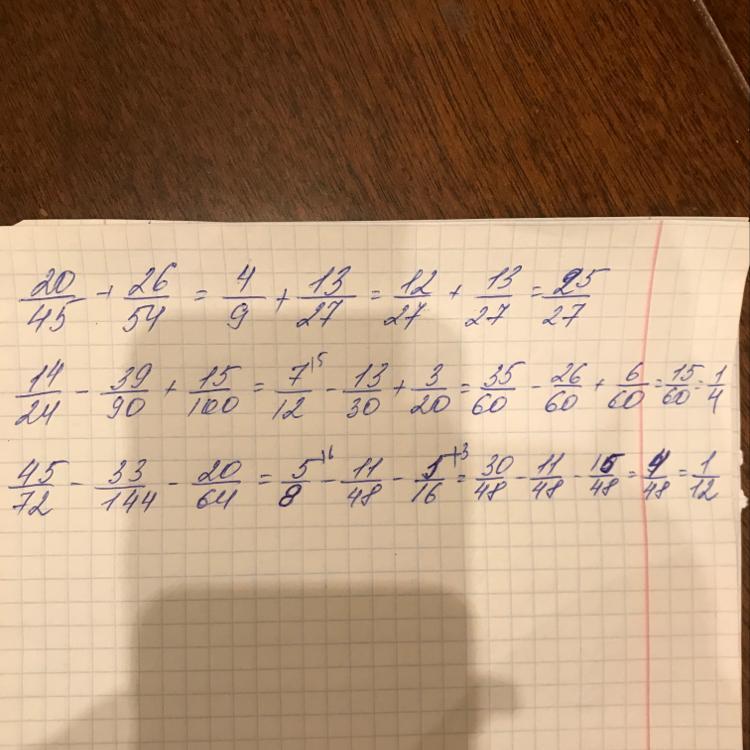 20/45 + 26/54 = 4/9 + 13/27 = 12/27 + 13/27 = 25/27
14/24 - 39/90 + 15/100 = 7/12 |5 - 13/30 + 3/20 = 35/60 - 26/60 + 6/60 = 15/60 = 1/4
45/72 - 33/144 - 20/64 = 5/8 |6 - 11/48 - 5/16 |3 = 30/48 - 11/48 - 15/48 = 4/48 = 1/12